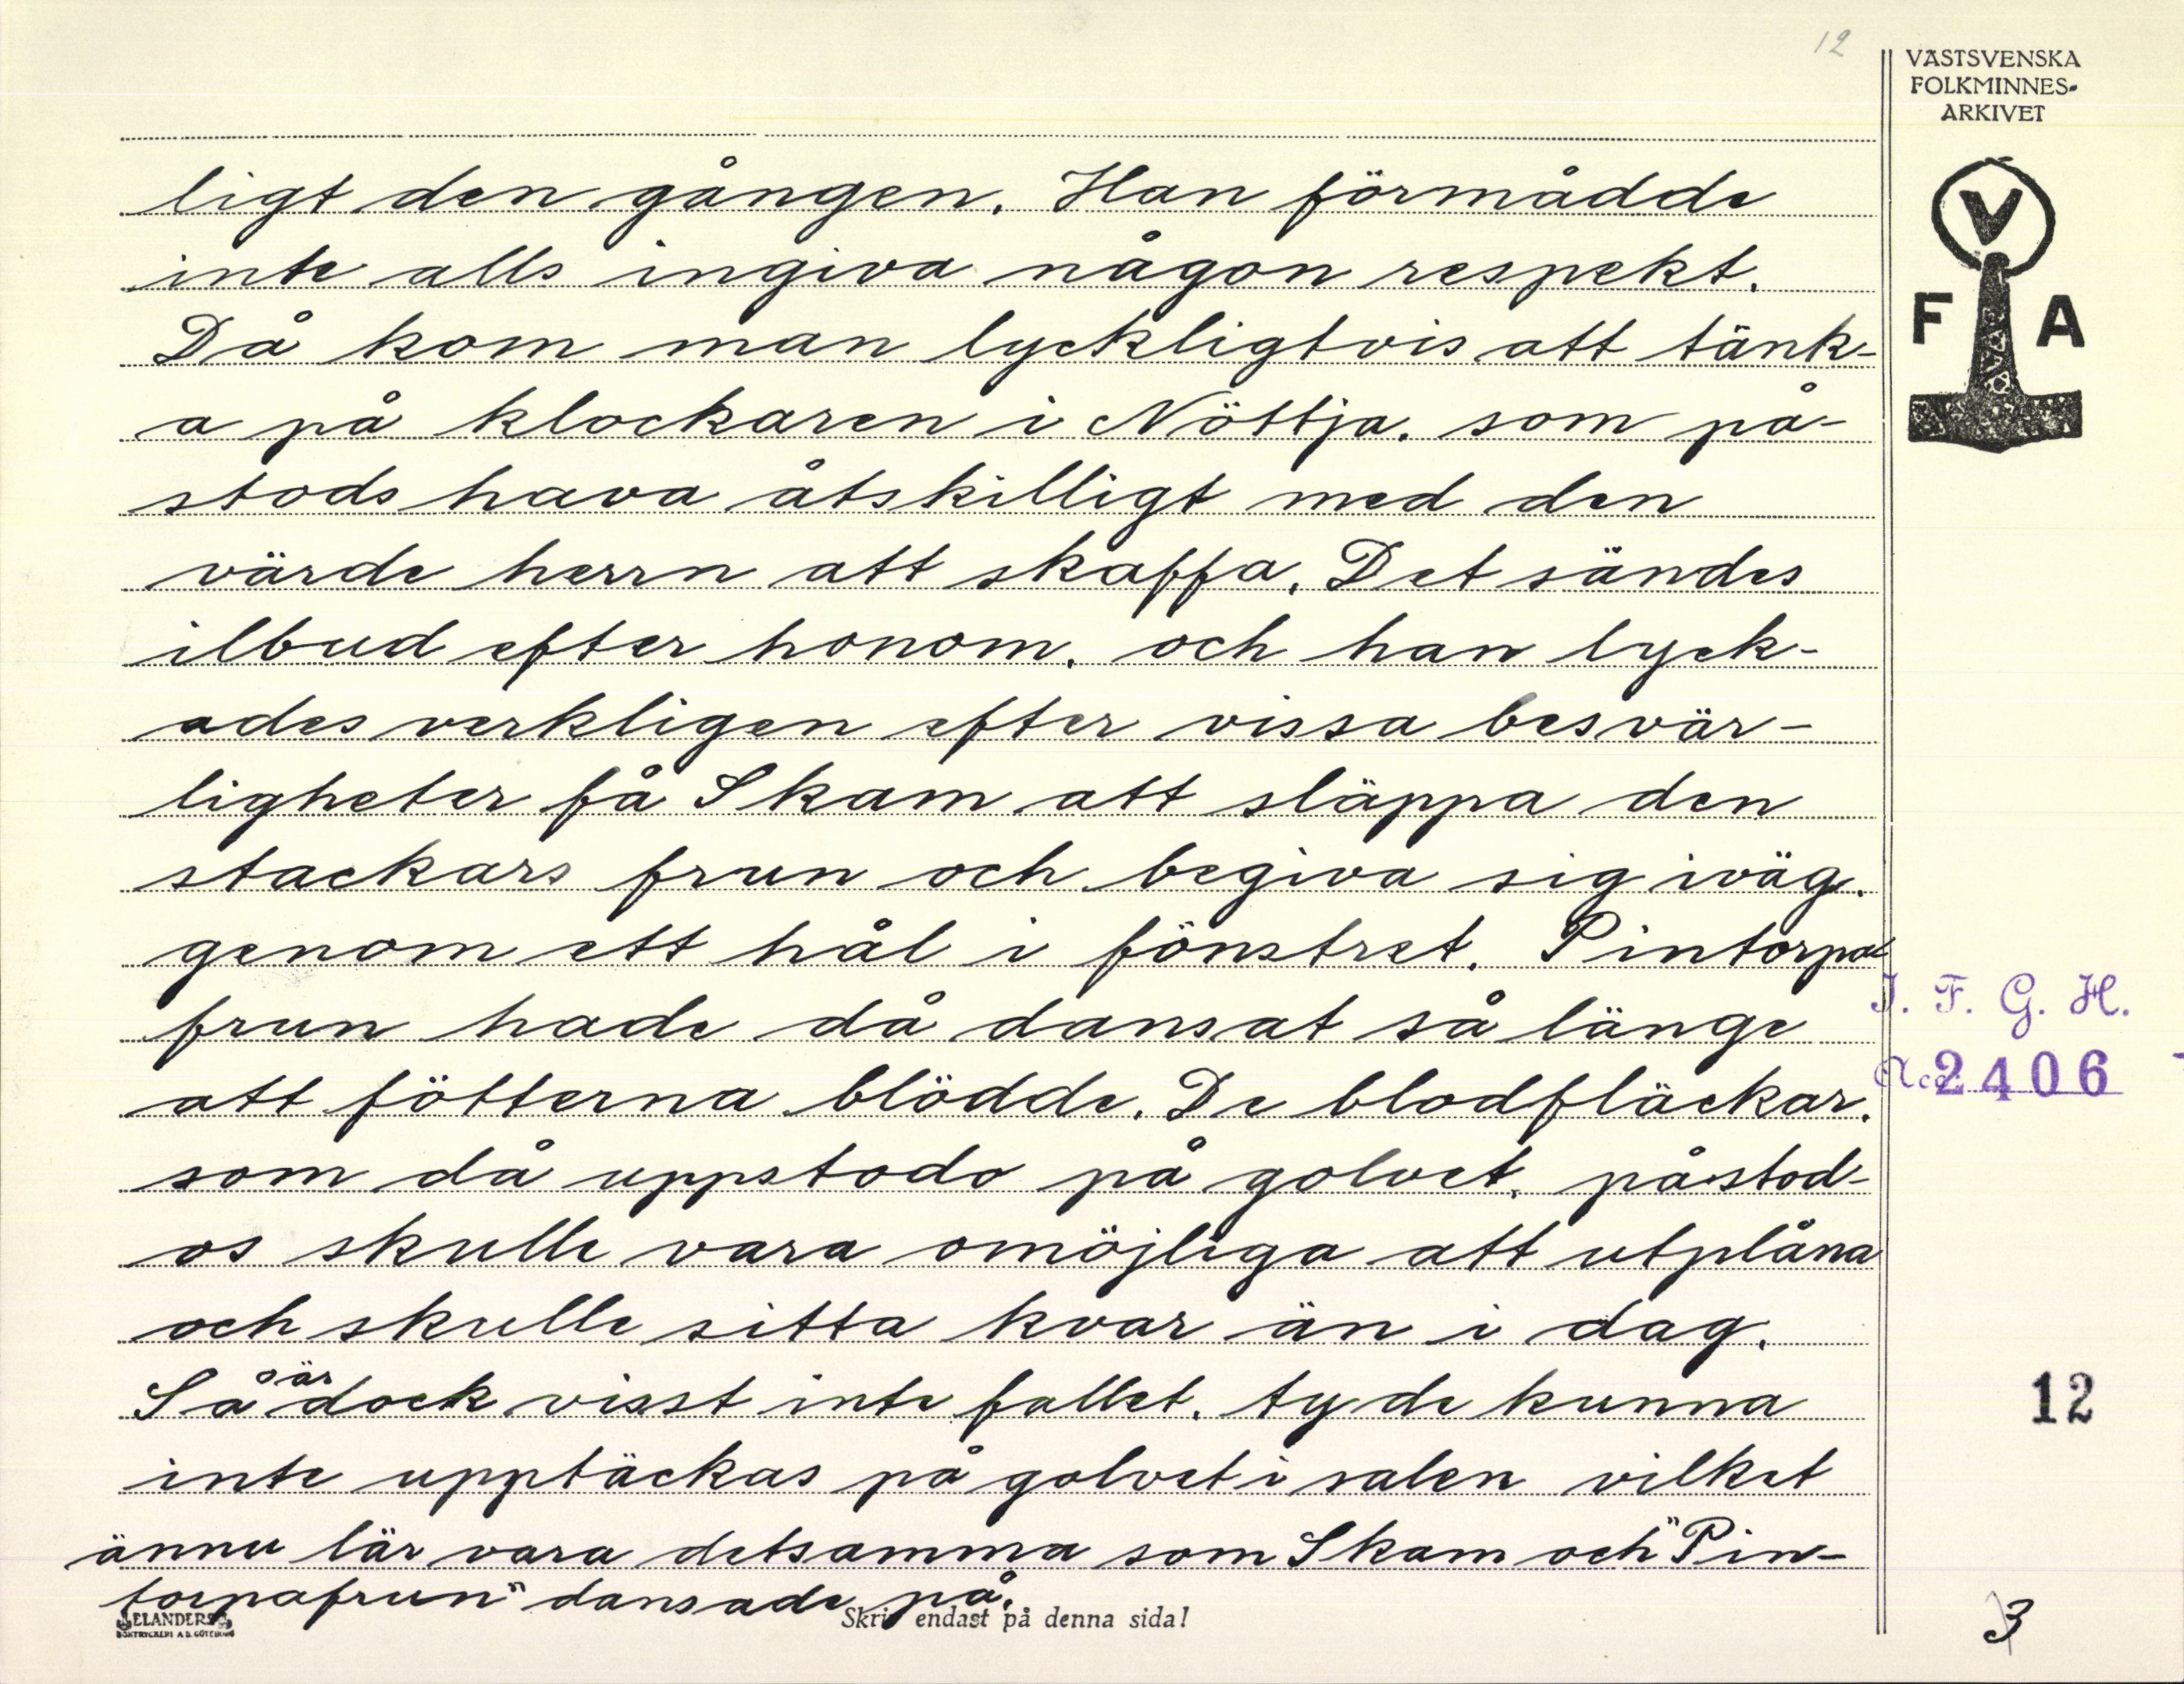 12
VÄSTSVENSKA
FOLKMINNES-
ARKIVET
V
F A
ligt den gången. Han förmådde
inte alls ingiva någon respekt.
Då kom man lyckligtvis att tänk-
a på klockaren i Nöttja. som på-
stods hava åtskilligt med den
värde herrn att skaffa. Det sändes
ilbud efter honom. och han lyck-
ades verkligen efter vissa besvär-
ligheter få Skam att släppa den
stackars frun och begiva sig iväg.
genom ett hål i fönstret. Pintorpa-
frun hade då dansat så länge
att fötterna blödde. De blodfläckar.
som då uppstodo på golvet. påstod-
os skulle vara omöjliga att utplåna
och skulle sitta kvar än i dag.
Så är dock visst inte fallet. ty de kunna
inte upptäckas på golvet i salen vilket
ännu lär vara detsamma som Skam och "Pin-
torpafrun" dansade på.
I. F. G. H.
Acc. 2406
12
3
ELANDERS
BOKTRYCKERI A.B. GÖTEBORG
Skriv endast på denna sida!